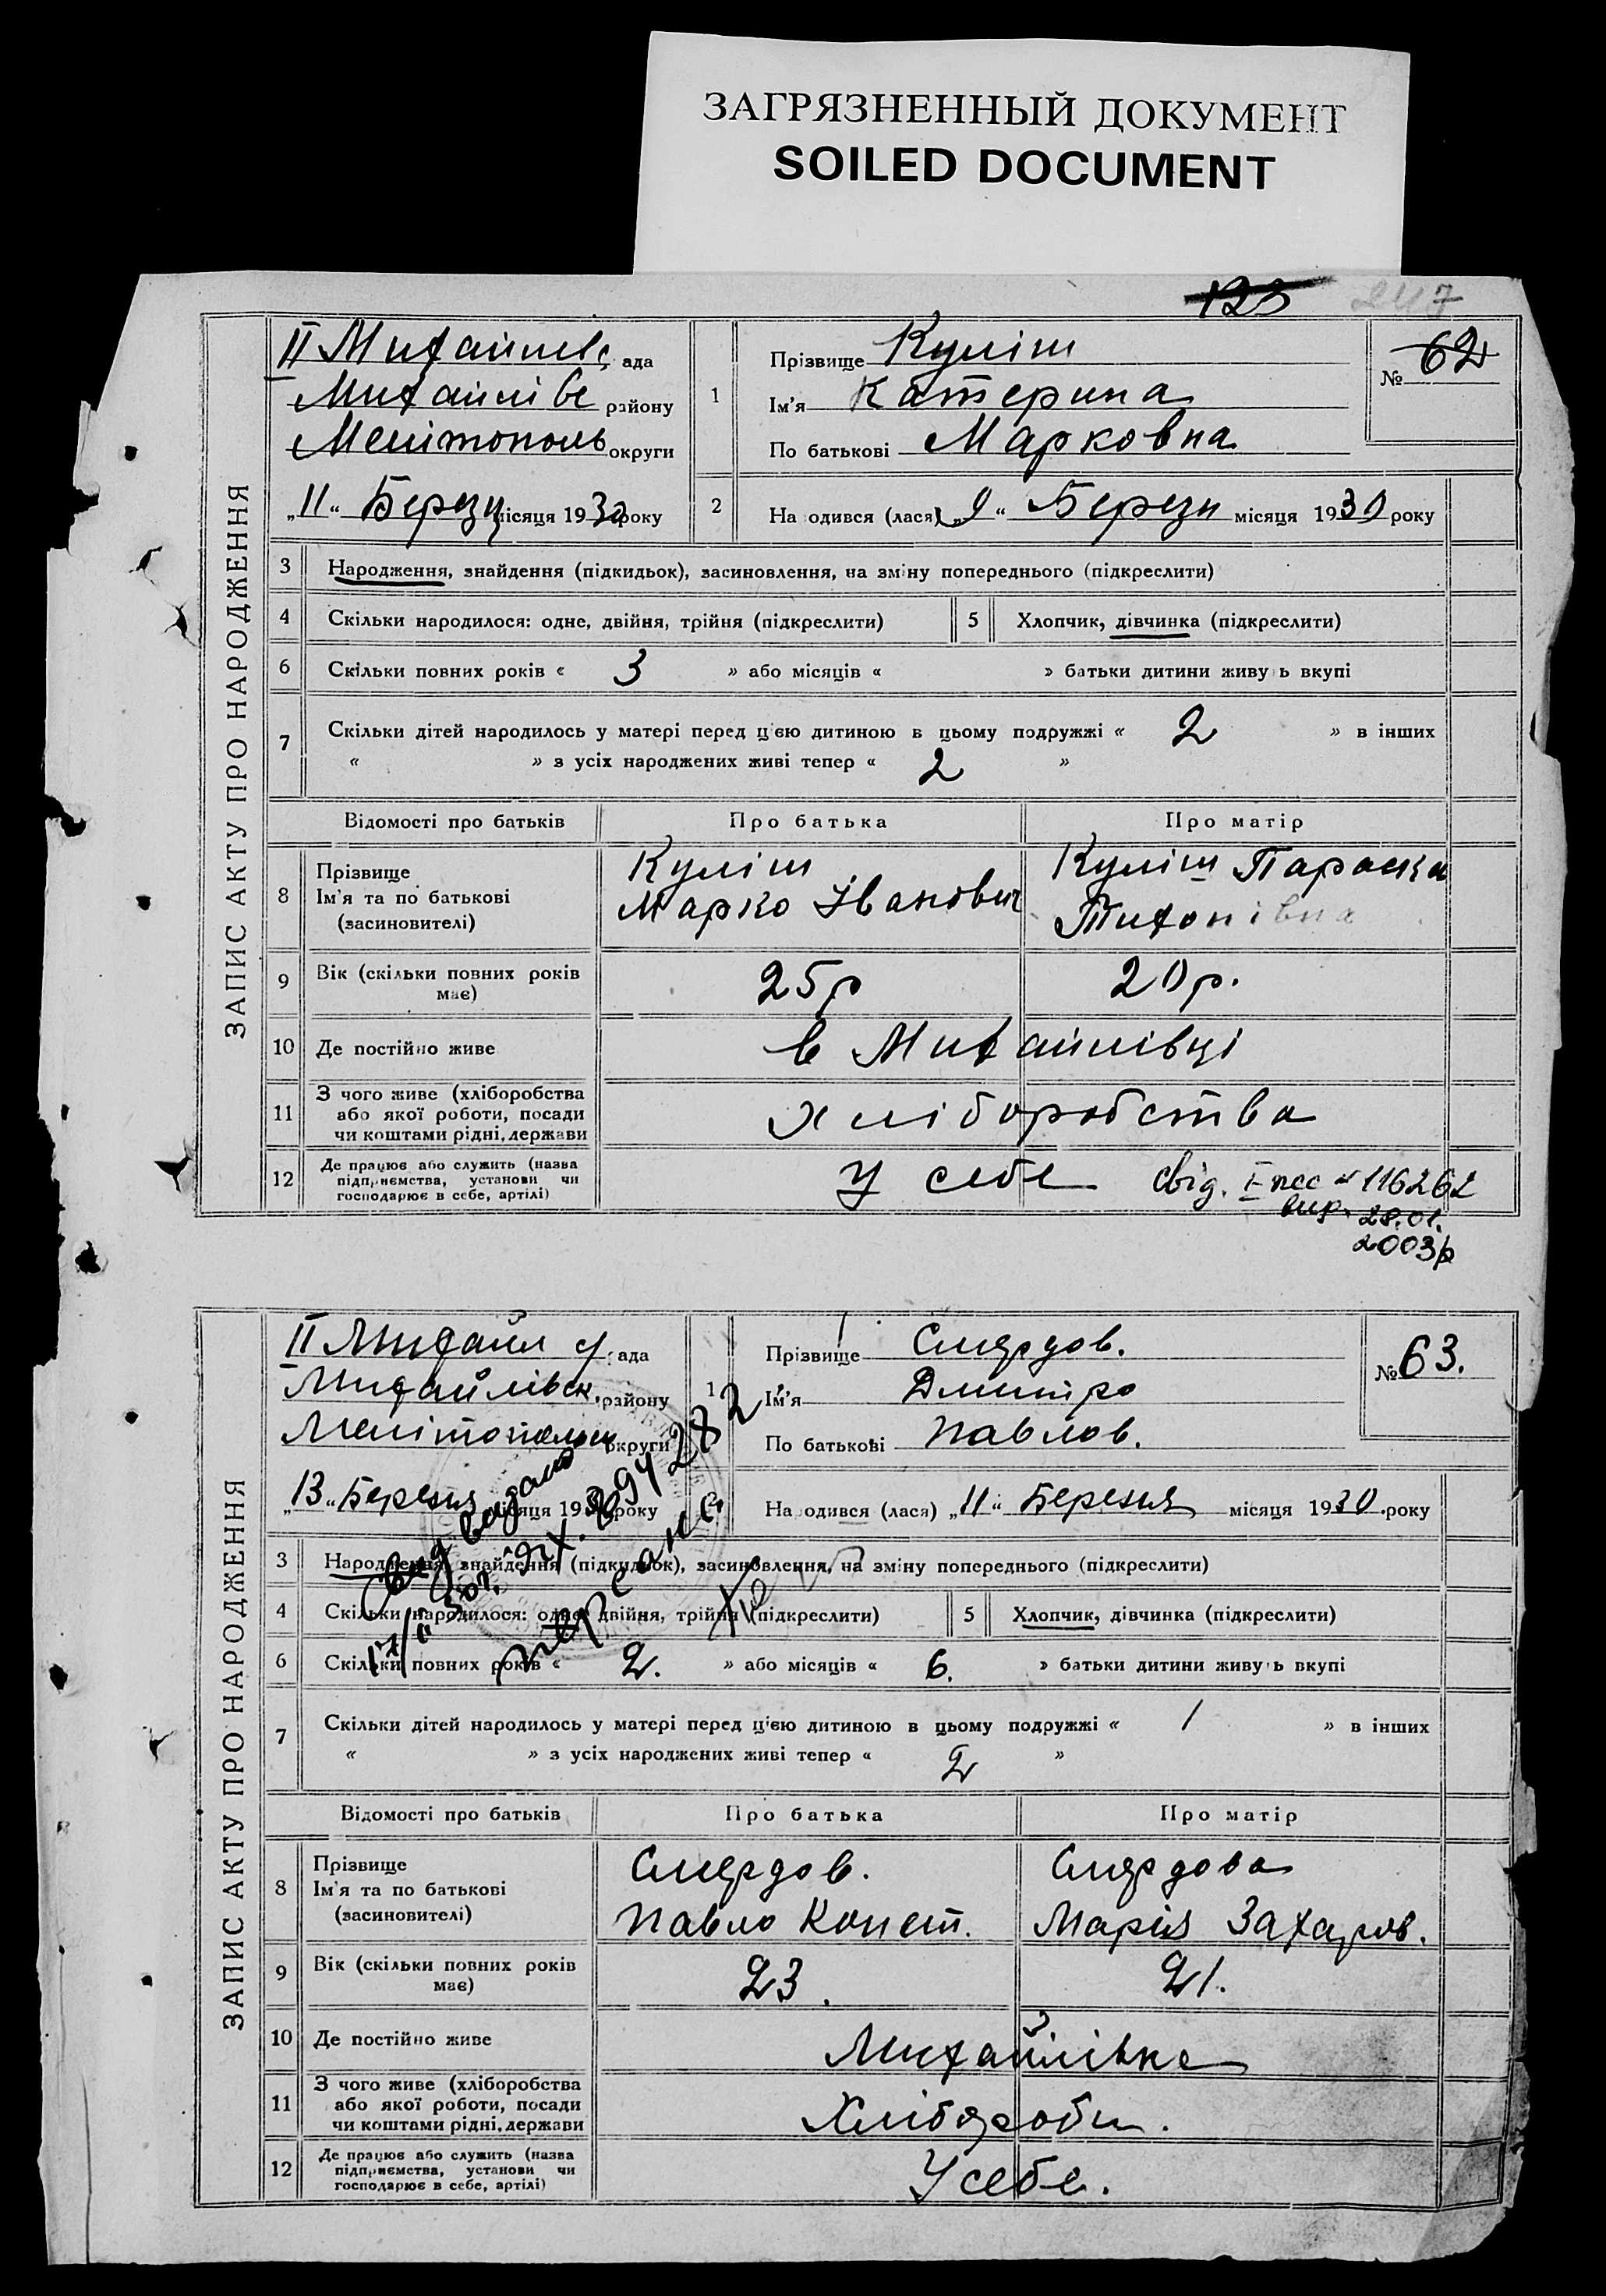 ЗАГРЯЗНЕННЫЙ ДОКУМЕНТ
SOILED DOCUMENT
123 247
ЗАПИС АКТУ ПРО НАРОДЖЕННЯ
ІІ Михайлівс ада
Михайлівс району
Мелітополь округи
„11“ Березн місяця 1930 року
1 Прізвище Куліш
Ім'я Катерина
По батькові Марковна
№ 62
2 На одився (лася) „9“ Березн місяця 1930 року
3 Народження, знайдення (підкидьок), засиновлення, на зміну попереднього (підкреслити)
4 Скільки народилося: одне, двійня, трійня (підкреслити) 5 Хлопчик, дівчинка (підкреслити)
6 Скільки повних років « 3 » або місяців « » батьки дитини живу ь вкупі
7 Скільки дітей народилось у матері перед цією дитиною в цьому подружжі « 2 » в інших
« » з усіх народжених живі тепер « 2 »
Відомості про батьків Про батька Про матір
8 Прізвище
Ім'я та по батькові
(засиновителі)
Куліш
Марко Іванович
Куліш Параска
Тихонівна
9 Вік (скільки повних років
має)
25р 20р.
10 Де постійно живе в Михайлівці
11 З чого живе (хліборобства
або якої роботи, посади
чи коштами рідні, держави
хліборобства
12 Де працює або служить (назва
підприємства, установи чи
господарює в себе, артілі)
У себе
свід. І-пес № 116262
вид. 28.01.
2003р
ЗАПИС АКТУ ПРО НАРОДЖЕННЯ
ІІ Михайл ада
Михайлівськ. району
Мелітопольск округи
„13“ Березня місяця 1930 року
1 Прізвище Смердов.
Ім'я Дмитро
По батькові Павлов.
№ 63.
2 На одився (лася) „11“ Березня місяця 1930 року
3 Народження, знайдення (підкидьок), засиновлення, на зміну попереднього (підкреслити)
4 Скільки народилося: одне, двійня, трійня (підкреслити) 5 Хлопчик, дівчинка (підкреслити)
6 Скільки повних років « 2. » або місяців « 6. » батьки дитини живу ь вкупі
7 Скільки дітей народилось у матері перед цією дитиною в цьому подружжі « 1 » в інших
« » з усіх народжених живі тепер « 2 »
Відомості про батьків Про батька Про матір
8 Прізвище
Ім'я та по батькові
(засиновителі)
Смердов.
Павло Конст.
Смердова
Марія Захаров.
9 Вік (скільки повних років
має)
23. 21.
10 Де постійно живе Михайлівка
11 З чого живе (хліборобства
або якої роботи, посади
чи коштами рідні, держави
Хлібороби.
12 Де працює або служить (назва
підприємства, установи чи
господарює в себе, артілі)
У себе.